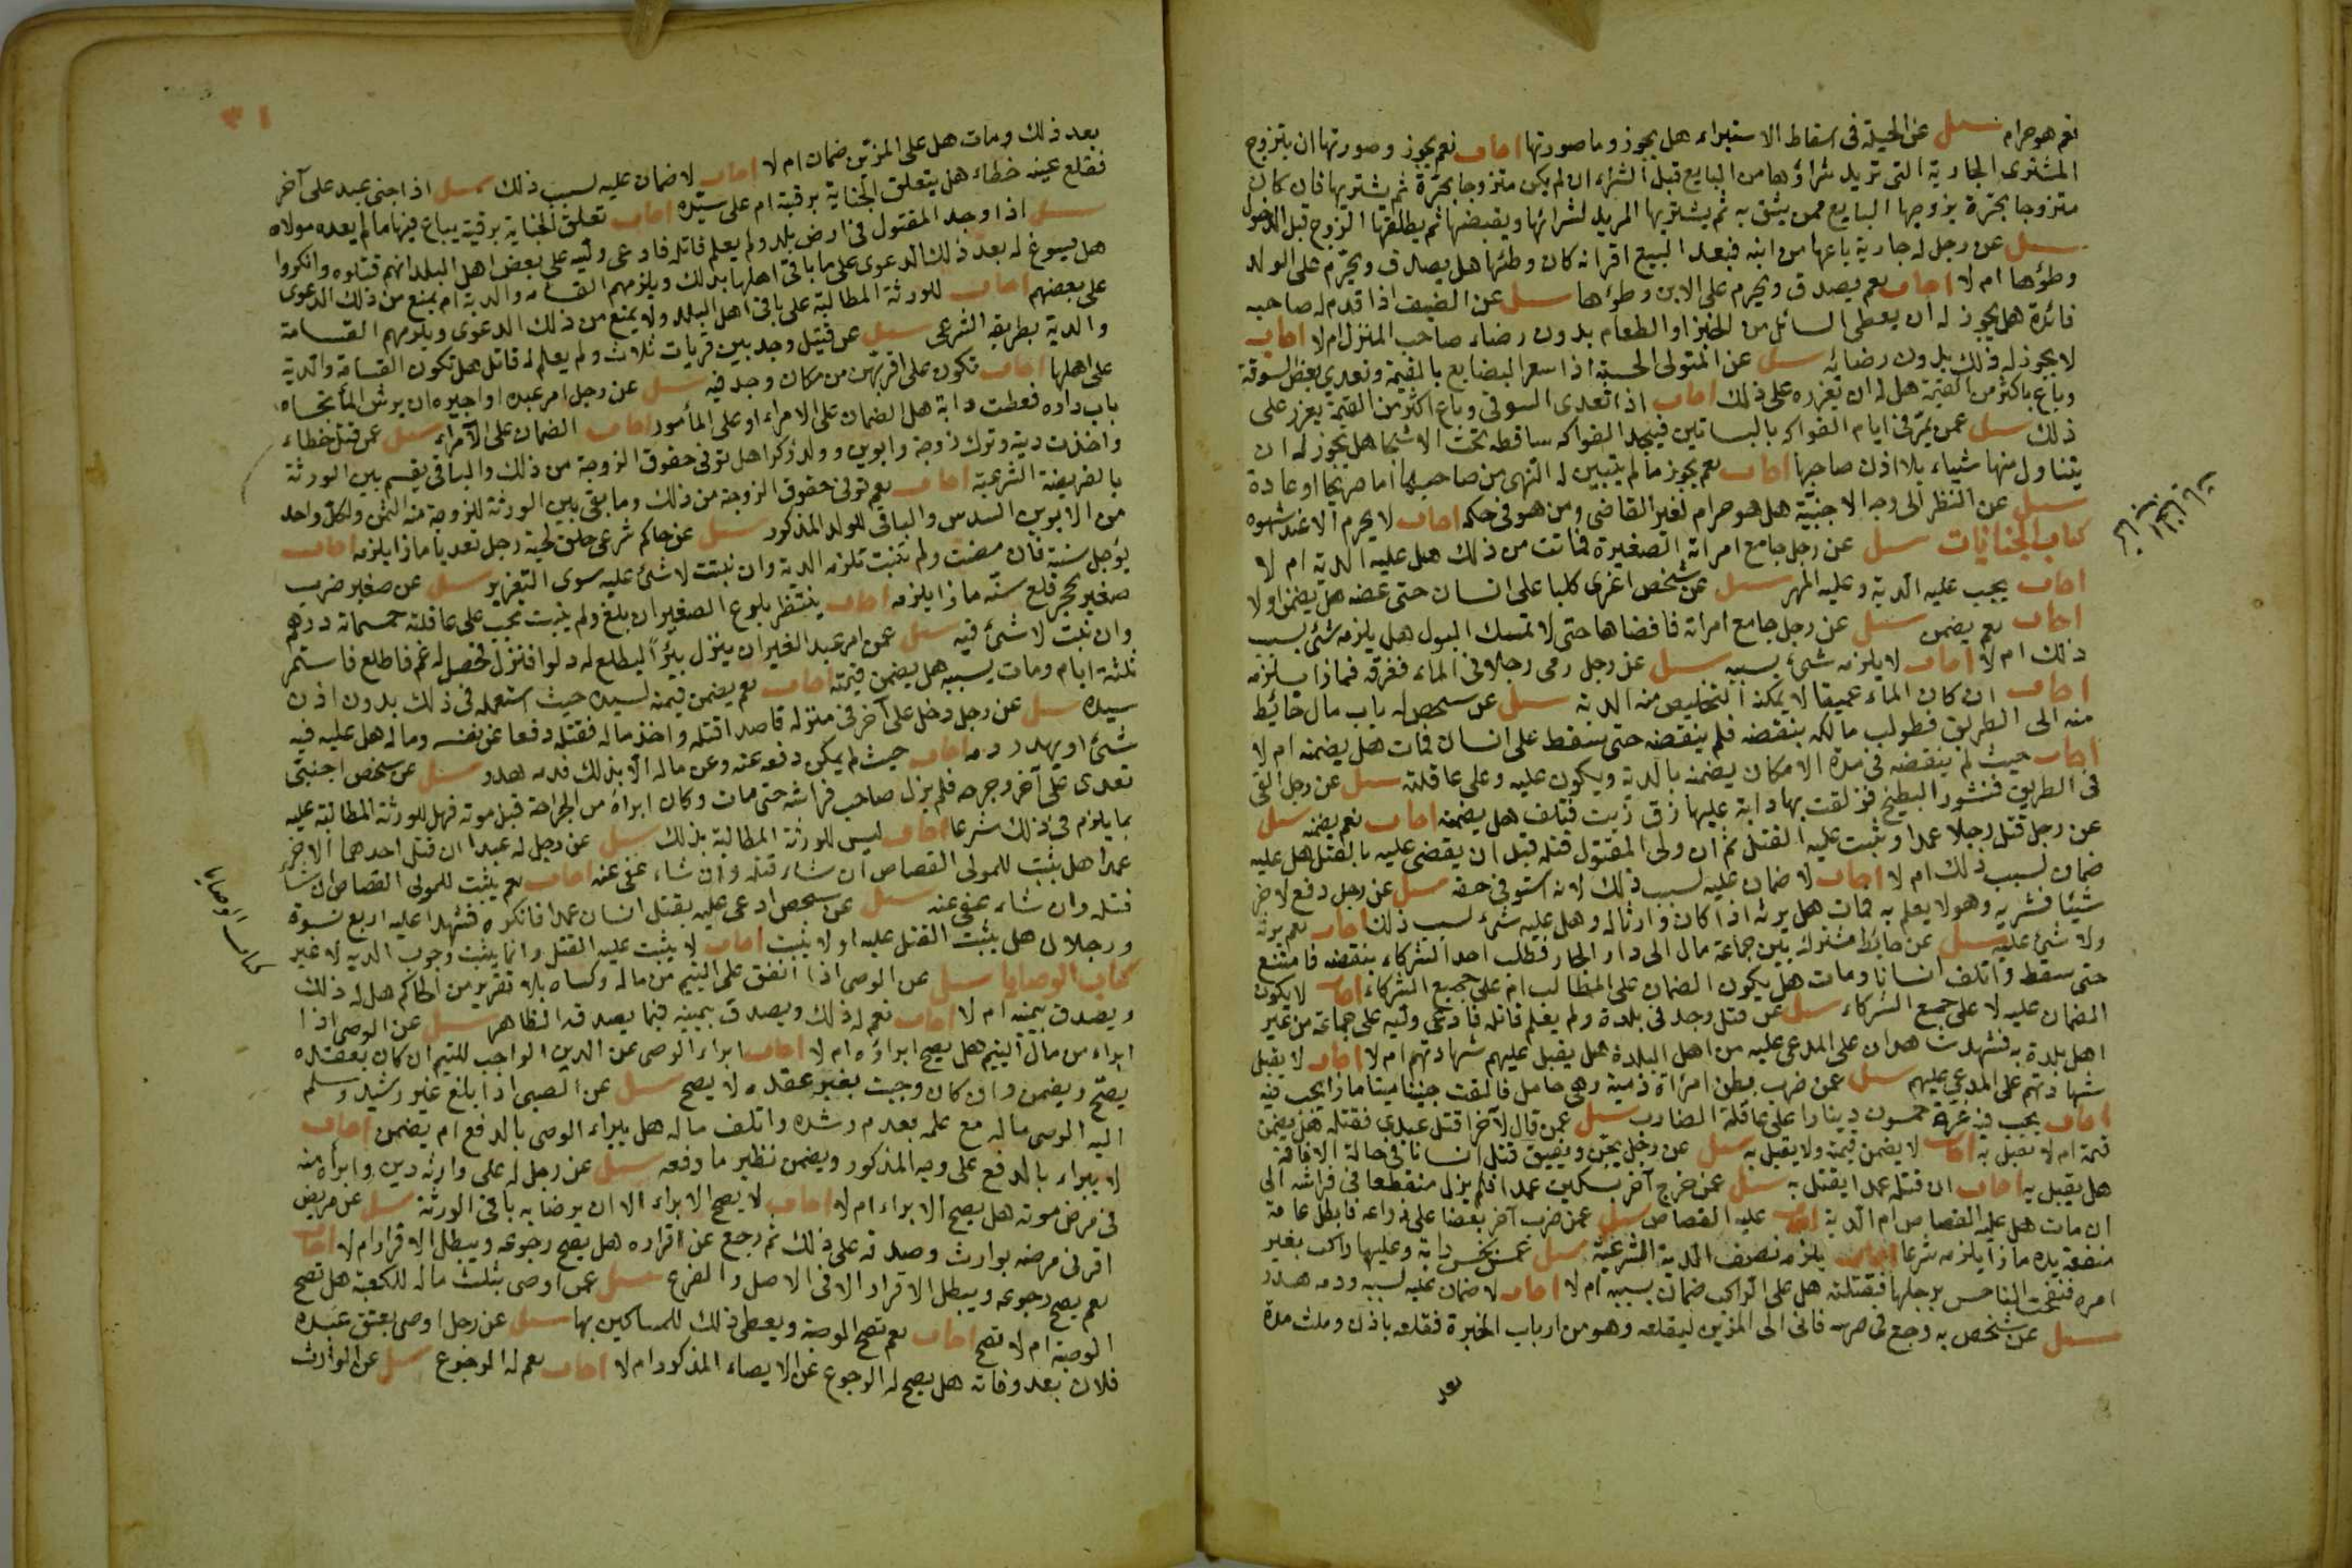 نعم هو حرام سئل عن الحيلة فى اسقاط الاستبراء هل يجوز وما صورتها اجاب نعم يجوز وصورتها ان يتزوج
المشترى الجارية التى تريد شراؤها من البايع قبل الشراء ان لم يكن متزوجا بحرة ثم يشتريها فان كان
متزوجا بحرة يزوجها البايع ممن يثق به ثم يشتريها المريد لشرائها ويقبضها ثم يطلقها الزوج قبل الدخول
سئل عن رجل له جارية باعها من ابنه فبعد البيع اقر انه كان وطئها هل يصدق ويحرم على الولد
وطؤها ام لا اجاب نعم يصدق ويحرم على الابن وطؤها سئل عن الضيف اذا قدم له صاحبه
مائدة هل يجوز له ان يعطى السائل من الخبز او الطعام بدون رضاء صاحب المنزل ام لا اجاب
لا يجوز له ذلك بدون رضائه سئل عن المتولى الحسبة اذا سعر البضايع بالقيمة وتعدى بعض السوقة
وباع باكثر من القيمة هل له ان يعزره على ذلك اجاب اذا تعدى السوقى وباع اكثر من القيمة يعزر على
ذلك سئل عمن يمر فى ايام الفواكه بالبساتين فيجد الفواكه ساقطة تحت الاشجار هل يجوز له ان
يتناول منها شياء بلا اذن صاحبها اجاب نعم يجوز ما لم يتبين له النهى من صاحبها اما صريحا او عادة
سئل عن النظر الى وجه الاجنبية هل هو حرام لغير القاضى ومن هو فى حكمه اجاب لا يحرم الا عند شهوة
كتاب الجنايات سئل عن رجل جامع امراته الصغيرة فماتت من ذلك هل عليه الدية ام لا
اجاب يجب عليه الدية وعليه المهر سئل عن شخص اغرى كلبا على انسان حتى عضه هل يضمن او لا
اجاب نعم يضمن سئل عن رجل جامع امراته فافضاها حتى لا تمسك البول هل يلزمه شئ بسبب
ذلك ام لا اجاب لا يلزمه شئ بسببه سئل عن رجل رمى رجلا فى الماء فغرقه فماذا يلزمه
اجاب ان كان الماء عميقا لا يمكنه التخليص منه الدية سئل عن شخص له باب مال حائط
منه الى الطريق فطولب مالكه بنقضه فلم ينقضه حتى سقط على انسان فمات هل يضمنه ام لا
اجاب حيث لم ينقضه فى مدة الامكان يضمنه بالدية ويكون عليه وعلى عاقلته سئل عن رجل القى
فى الطريق قشور البطيخ فزلقت بها دابة عليها زق زيت فتلف هل يضمنه اجاب نعم يضمنه سئل
عن رجل قتل رجلا عمدا وثبت عليه القتل ثم ان ولى المقتول قتله قبل ان يقضى عليه بالقتل هل عليه
ضمان بسبب ذلك ام لا اجاب لا ضمان عليه بسبب ذلك لانه استوفى حقه سئل عن رجل دفع لاخر
شيئا فشربه وهو لا يعلم به فمات هل يرثه اذا كان وارثا له وهل عليه شئ بسبب ذلك اجاب نعم يرثه
ولا شئ عليه سئل عن حايط مشترك بين جماعة مال الى دار الجار فطلب احد الشركاء بنقضه فامتنع
حتى سقط واتلف انسانا ومات هل يكون الضمان على المطالب ام على جميع الشركاء اجاب لا يكون
الضمان عليه لا على جميع الشركاء سئل عن قتل وجد فى بلدة ولم يعلم قاتله فادعى وليه على جماعة من غير
اهل بلدة به فشهدت هدان على المدعى عليه من اهل البلدة هل يقبل عليهم شهادتهم ام لا اجاب لا يقبل
شهادتهم على المدعى عليهم سئل عمن ضرب بطن امراة ذمية وهى حامل فالقت جنينا ميتا ماذا يجب فيه
اجاب يجب فيه غرة خمسون دينارا على عاقلة الضارب سئل عمن قال لآخر اقتل عبدى فقتله هل يضمن
قيمته ام لا يقبل به اجاب لا يضمن قيمته ولا يقتل به سئل عن رجل يجن ويفيق قتل انسانا فى حالة الافاقة
هل يقتل به اجاب ان قتله عمدا يقتل به سئل عمن جرح آخر بسكين عمدا فلم يزل منقطعا فى فراشه الى
ان مات هل عليه القصاص ام الدية اجاب عليه القصاص سئل عمن ضرب آخر بعصا على ذراعه فابطل عامة
منفعة يده ماذا يلزمه شرعا اجاب يلزمه نصف الدية الشرعية سئل عمن نخس دابة وعليها راكب بغير
امره فنفحت الناخس برجلها فقتلته هل على الراكب ضمان بسببه ام لا اجاب لا ضمان عليه بسببه ودمه هدر
سئل عن شخص به وجع فى ضرسه فاتى الى المزين ليقلعه وهو من ارباب الخبرة فقلعه باذنه ومكث مدة
بعد
بعد ذلك ومات هل على المزين ضمان ام لا اجاب لا ضمان عليه بسبب ذلك سئل اذا جنى عبد على آخر
فقلع عينه خطاء هل يتعلق الجناية برقبته ام على سيده اجاب تعلق الجناية برقبته يباع فيها ما لم يفده مولاه
سئل اذا وجد المقتول فى ارض بلد ولم يعلم قاتله فادعى وليه على بعض اهل البلد انهم قتلوه وانكروا
هل يسوغ له بعد ذلك الدعوى على باقى اهلها بذلك ويلزمهم القسامة والدية ام يمنع من ذلك الدعوى
على بعضهم اجاب للورثة المطالبة على باقى اهل البلد ولا يمنع من ذلك الدعوى ويلزمهم القسامة
والدية بطريقه الشرعى سئل عن قتيل وجد بين قريات ثلاث ولم يعلم له قاتل هل تكون القسامة والدية
على اهلها اجاب تكون على اقربهن من مكان وجد فيه سئل عن رجل امر عبده او اجيره ان يرش الماء تجاه
باب داره فعطبت دابة هل الضمان على الامر او على المأمور اجاب الضمان على الآمر سئل عمن قتل خطاء
واخذت ديته وترك زوجة وابوين وولد ذكرا هل توفى حقوق الزوجة من ذلك والباقى يقسم بين الورثة
بالفريضة الشرعية اجاب نعم توفى حقوق الزوجة من ذلك وما بقى بين الورثة للزوجة منه الثمن ولكل واحد
من الابوين السدس والباقى للولد المذكور سئل عن حاكم شرعى حلق لحية رجل تعديا ماذا يلزمه اجاب
يؤجل سنة فان مضت ولم تنبت تلزمه الدية وان نبتت لا شئ عليه سوى التعزير سئل عن صغير ضرب
صغير بحجر قلع سنه ماذا يلزمه اجاب ينتظر بلوغ الصغير ان بلغ ولم ينبت تجب على عاقلته خمسمائة درهم
وان نبت لا شئ فيه سئل عمن امر عبد الغير ان ينزل بئرا ليطلع له دلوا فنزل فحصل له غم فاطلع فاستمر
ثلثة ايام ومات بسببه هل يضمن قيمته اجاب نعم يضمن قيمته لسيده حيث استعمله فى ذلك بدون اذن
سيده سئل عن رجل دخل على آخر فى منزله قاصدا قتله واخذ ماله فقتله دفعا عن نفسه وماله هل عليه فيه
شئ او يهدر دمه اجاب حيث لم يمكن دفعه عنه وعن ماله الا بذلك فدمه هدر سئل عن شخص اجنبى
تعدى على آخر وجرحه فلم يزل صاحب فراشه حتى مات وكان ابراه من الجراحة قبل موته فهل للورثة المطالبة عليه
بما يلزم فى ذلك شرعا اجاب ليس للورثة المطالبة بذلك سئل عن رجل له عبدان قتل احدهما الاخر
عمدا هل يثبت للمولى القصاص ان شاء قتله وان شاء عفى عنه اجاب نعم يثبت للمولى القصاص ان شاء
قتله وان شاء عفى عنه سئل عن شخص ادعى عليه بقتل انسان عمدا فانكره فشهدا عليه اربع نسوة
ورجلان هل يثبت القتل عليه او لا يثبت اجاب لا يثبت عليه القتل وانما يثبت وجوب الدية لا غير
كتاب الوصايا سئل عن الوصى اذا انفق على اليتيم من ماله وكساه بلا تقرير من الحاكم هل له ذلك
ويصدق بيمينه ام لا اجاب نعم له ذلك ويصدق بيمينه فيما يصدقه الظاهر سئل عن الوصى اذا
ابراء من مال اليتيم هل يصح ابراؤه ام لا اجاب ابراء الوصى عن الدين الواجب لليتيم ان كان بعقده
يصح ويضمن وان كان وجبت بغير عقده لا يصح سئل عن الصبى اذا بلغ غير رشيد وسلم
اليه الوصى ماله مع علمه بعدم رشده واتلف ماله هل يبراء الوصى بالدفع ام يضمن اجاب
لا يبراء بالدفع على وجه المذكور ويضمن نظير ما دفعه سئل عن رجل له على وارثه دين وابراه منه
فى مرض موته هل يصح الابراء ام لا اجاب لا يصح الابراء الا ان يرضا به باقى الورثة سئل عن مريض
اقر فى مرضه بوارث وصدقه على ذلك ثم رجع عن اقراره هل يصح رجوعه ويبطل الاقرار ام لا اجاب
نعم يصح رجوعه ويبطل الاقرار الا فى الاصل والفرع سئل عمن اوصى بثلث ماله للكعبة هل تصح
الوصية ام لا تصح اجاب نعم تصح الوصية ويعطى ذلك للمساكين بها سئل عن رجل اوصى بعتق عبده
فلان بعد وفاته هل يصح له الرجوع عن الايصاء المذكور ام لا اجاب نعم له الرجوع سئل عن الوارث
كتاب الوصايا